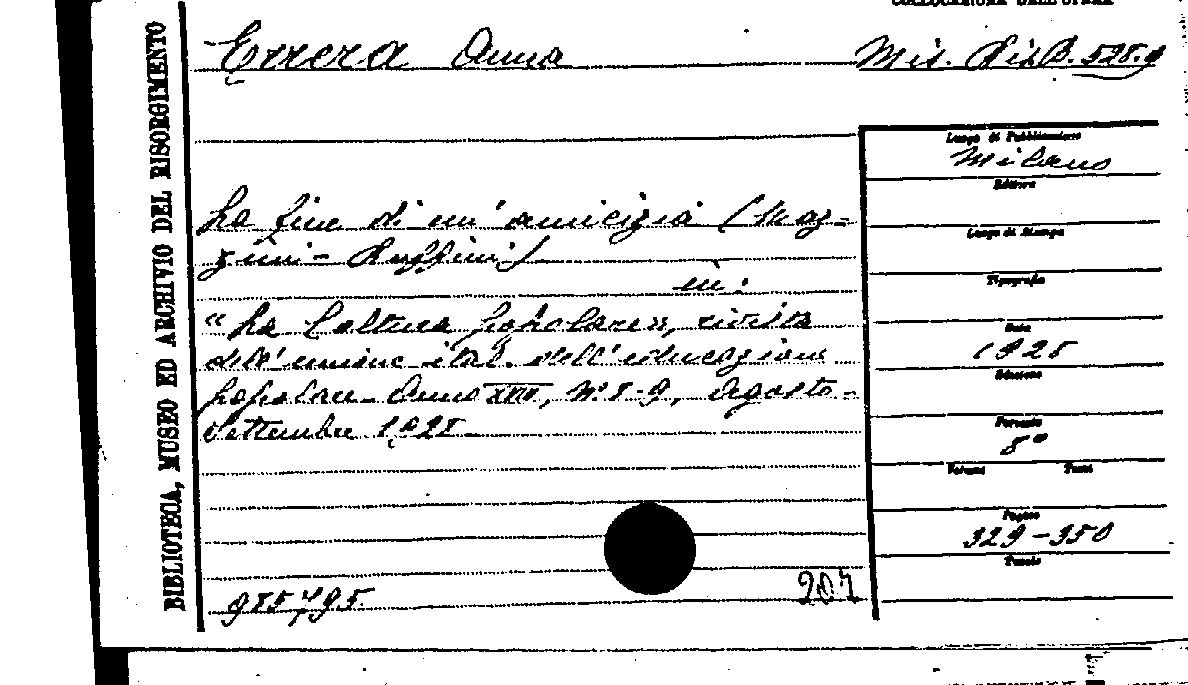 COLLOCAZIONE DELL'OPERA
BIBLIOTECA, MUSEO ED ARCHIVIO DEL RISORGIMENTO
Errera Anna
Mis. Ris. B. 528.9
Luogo di Pubblicazione
Milano
Editore
Luogo di Stampa
Tipografia
Data
1925
Edizione
Formato
8°
Volume Tomo
Pagine
329-350
Tavole
La fine di un'amicizia (Maz-
zini - Ruffini)
in:
"La Coltura popolare", rivista
dell'unione ital. dell'educazione
popolare - Anno XVII, N° 8-9, Agosto-
Settembre 1925
207